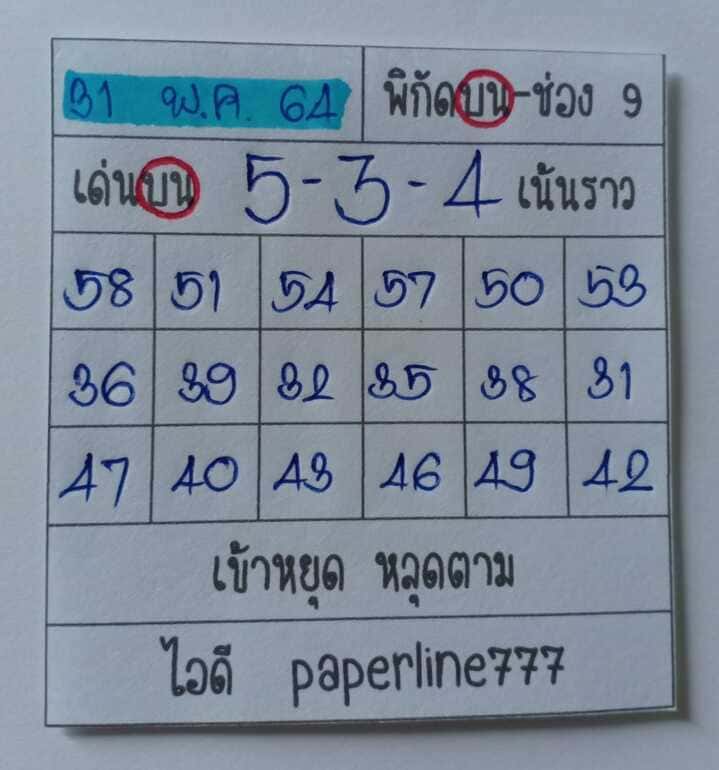 31 พ.ค. 64 พิกัดบน-ช่อง 9
เด่นบน 5-3-4 เน้นราว
58 51 54 57 50 53
36 39 32 35 38 31
47 40 43 46 49 42
เข้าหยุด หลุดตาม
ไอดี paperline777